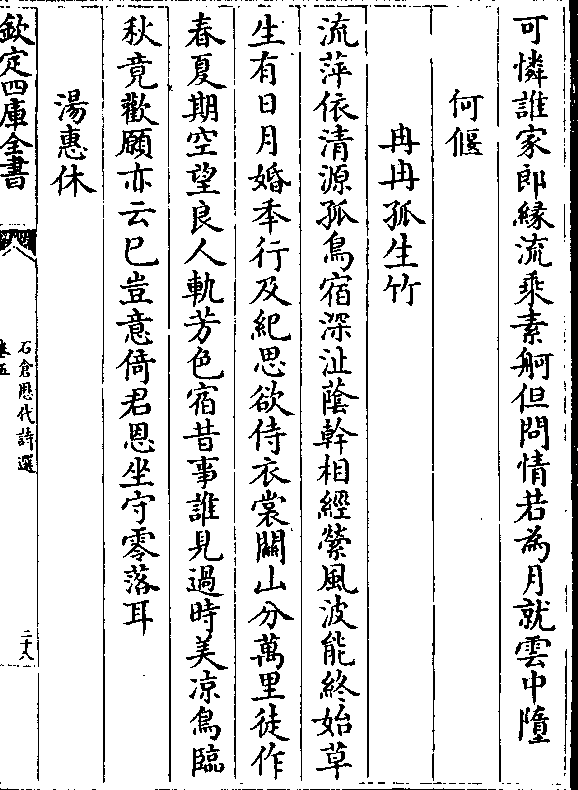 可憐誰家郎緣流乘素舸但問情若為月就雲中墮
何偃
冉冉孤生竹
流萍依清源孤鳥宿深沚蔭幹相經縈風波能終始草
生有日月婚年行及紀思欲侍衣裳關山分萬里徒作
春夏期空望良人軌芳色宿昔事誰見過時美涼鳥臨
秋竟歡願亦云已豈意倚君恩坐守零落耳
湯惠休
欽定四庫全書
石倉歷代詩選
卷五
二十八